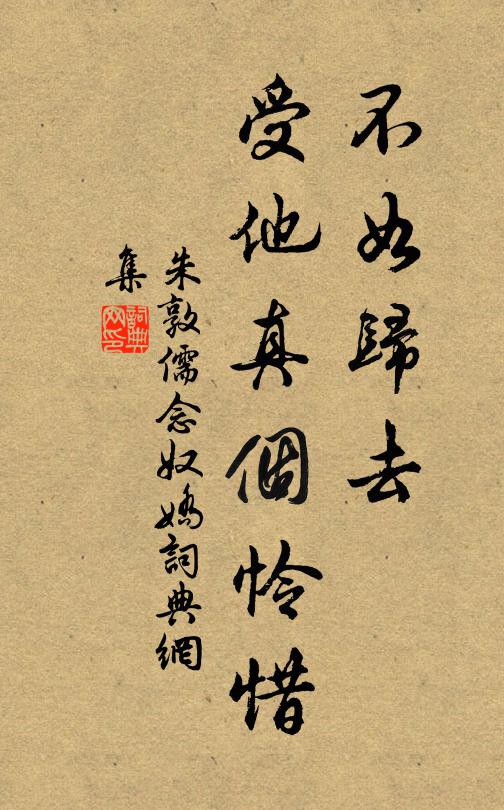 不如歸去
受他真個怜惜
朱敦儒念奴嬌詞典網
集
詞典網印